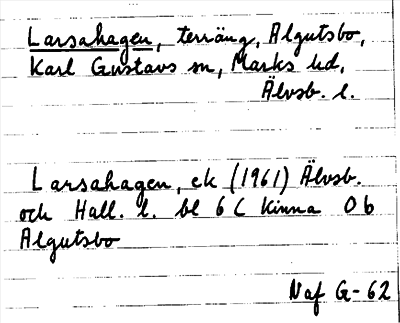 Larsahagen, terräng, Algutsbo,
Karl Gustavs sn, Marks hd,
Älvsb. l.
Larsahagen, ek (1961) Älvsb.
och Hall. l. bl 6 C Kinna 0 b
Algutsbo
Naf G-62